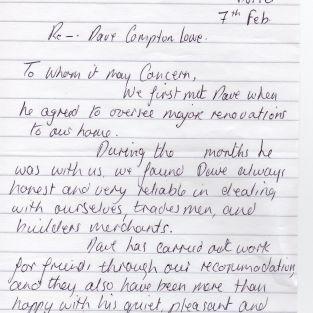 7th Feb
Re -. Dave Compton Lowe.
To whom it may Concern,
We first met Dave when
he agreed to oversee major renovations
to our home.
During the months he
was with us, we found Dave always
honest and very reliable in dealing
with ourselves, tradesmen, and
builders merchants.
Dave has carried out work
for friends through our recommodation
and they also have been more than
happy with his quiet, pleasant and